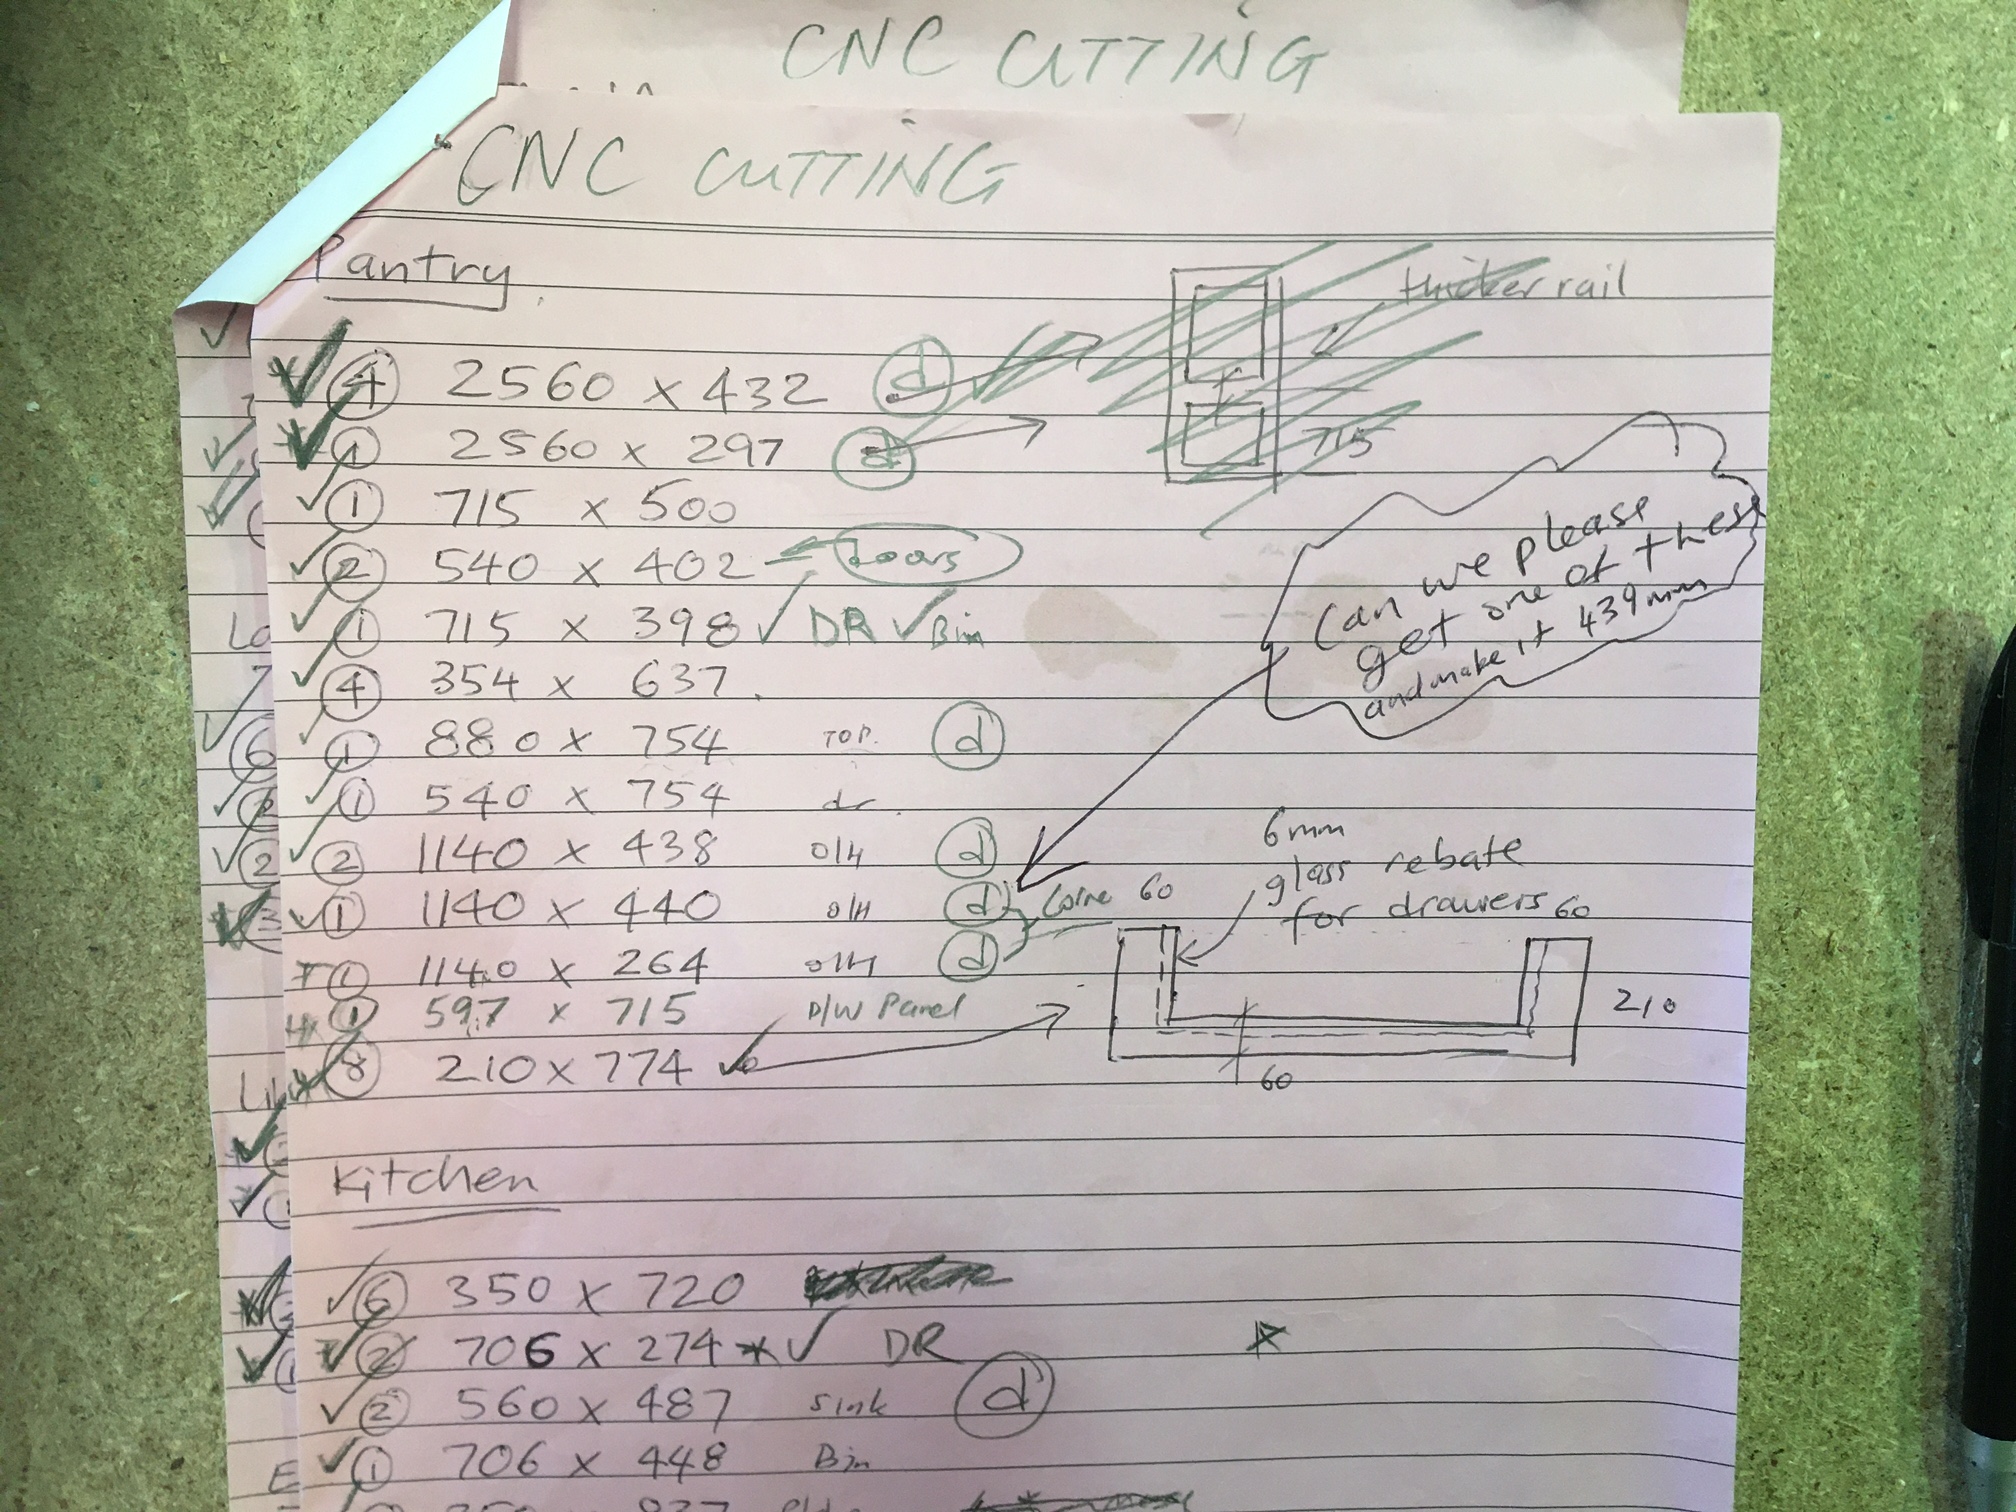 CNC CUTTING
CNC CUTTING
Pantry
thicker rail
4 2560 x 432 d
1 2560 x 297 d
715
1 715 x 500
2 540 x 402 Doors
1 715 x 398 DR Bin
Can we please
get one of these
and make it 439mm
4 354 x 637
1 880 x 754 TOP. d
1 540 x 754 dr
2 1140 x 438 O/H d
6mm
glass rebate
for drawers
1 1140 x 440 O/H d
60 60
1 1140 x 264 O/H d
1 597 x 715 D/W Panel
210
8 210 x 774
60
Kitchen
6 350 x 720
2 706 x 274 DR
2 560 x 487 Sink d
1 706 x 448 Bin